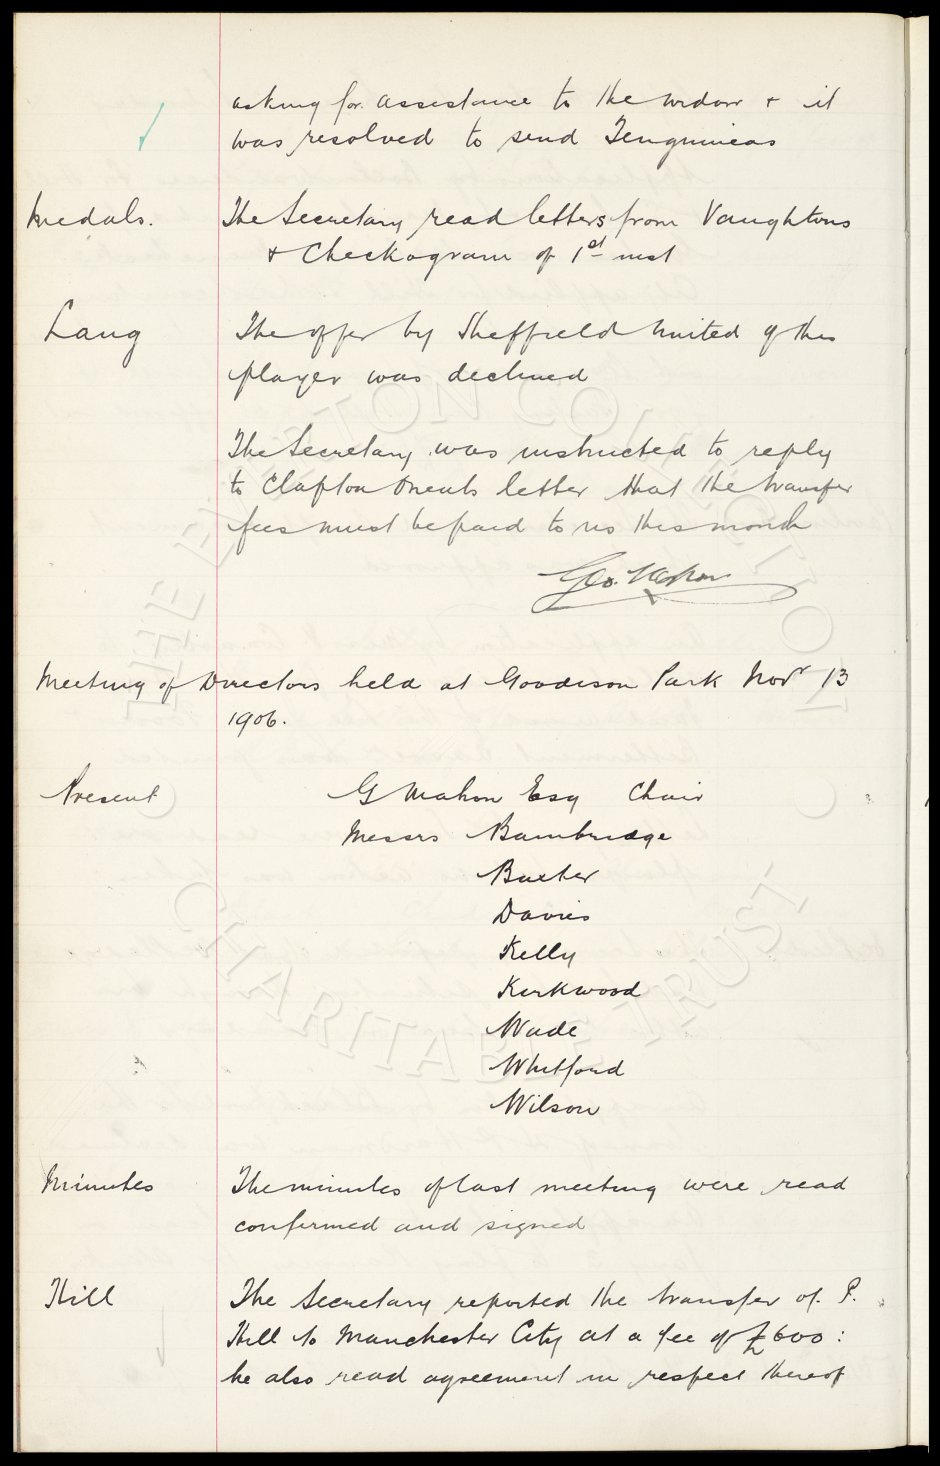 asking for assistance to the widow & it
was resolved to send Tenguineas
Medals. The Secretary read letters from Vaughtons
& Checkogram of 1st inst
Lang The offer by Sheffield United of this
player was declined
The Secretary was instructed to reply
to Clapton Orients letter that the transfer
fees must be paid to us this month
Geo. Mahon
Meeting of Directors held at Goodison Park Novr 13
1906.
Present G Mahon Esq Chair
Messrs Bainbridge
Baxter
Davies
Kelly
Kirkwood
Wade
Whitford
Wilson
Minutes The minutes of last meeting were read
confirmed and signed
Hill The Secretary reported the transfer of P.
Hill to Manchester City at a fee of £600:
he also read agreement in respect thereof
THE EVERTON COLLECTION
CHARITABLE TRUST